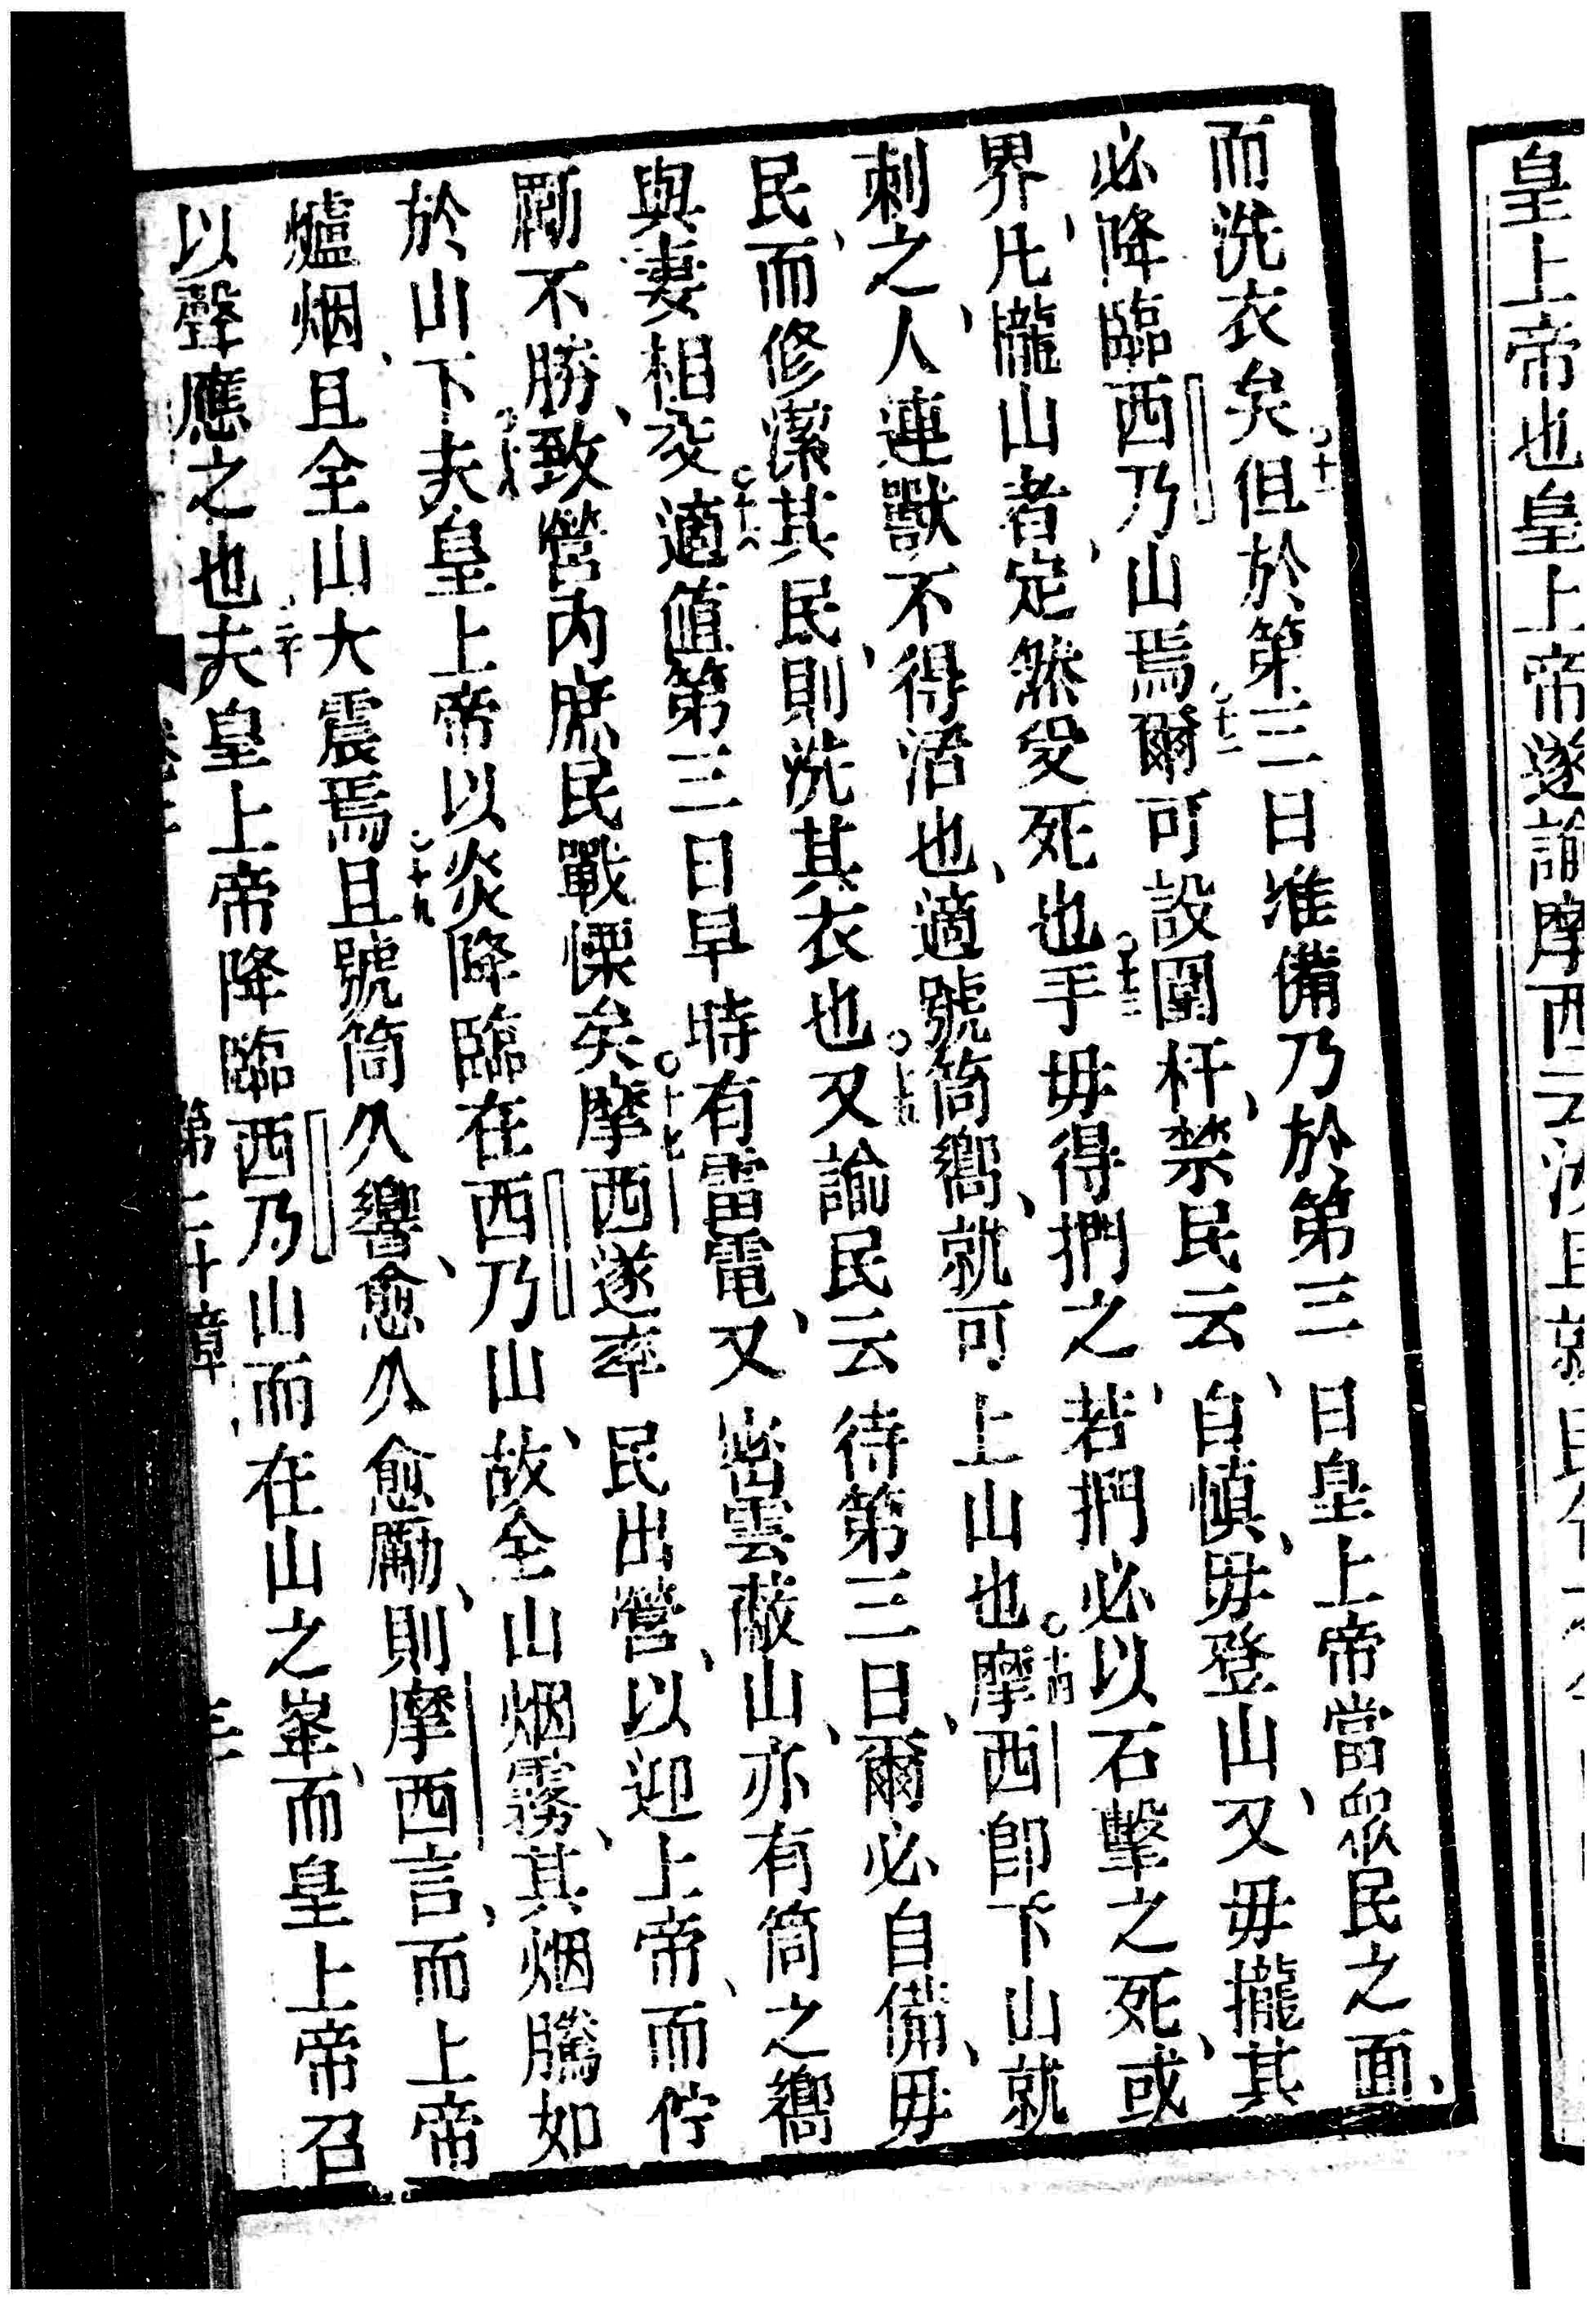 皇上帝也皇上帝遂諭摩西云汝且就民
而洗衣矣○十一但於第三日准備乃於第三日皇上帝當眾民之面、
必降臨西乃山焉○十二爾可設圍杆、禁民云、自慎、毋登山、又毋攏其
界、凡攏山者、定然受死也○十三手毋得捫之、若捫必以石擊之死、或
刺之、人連獸不得活也、適號筒嚮、就可上山也○十四摩西即下山就
民、而修潔其民、則洗其衣也○十五又諭民云待第三日、爾必自備、毋
與妻相交○十六適值第三日早時有雷電、又密雲蔽山、亦有筒之嚮
剛不勝、致營內庶民戰慄矣○十七摩西遂率民出營、以迎上帝、而佇
於山下○十八夫皇上帝以炎降臨在西乃山、故全山烟霧、其烟騰如
爐烟、且全山大震焉○十九且號筒久響、愈久愈勵、則摩西言、而上帝
以聲應之也○二十夫皇上帝降臨西乃山而在山之峯、而皇上帝召
第二十章